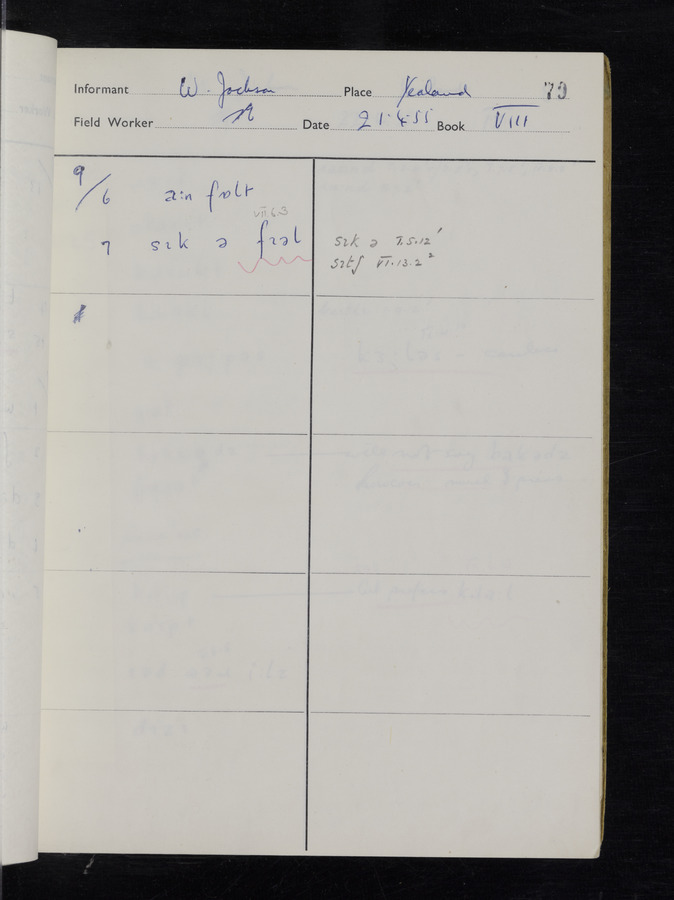 Informant W. Jackson Place Yealand 79
Field Worker Date 21.4.55 Book VIII
9/6 a:n fɒlt
VII.6.3
7 sɪk ə fɪəl sɪk ə V.5.12'
sɪtʃ VI.13.2²